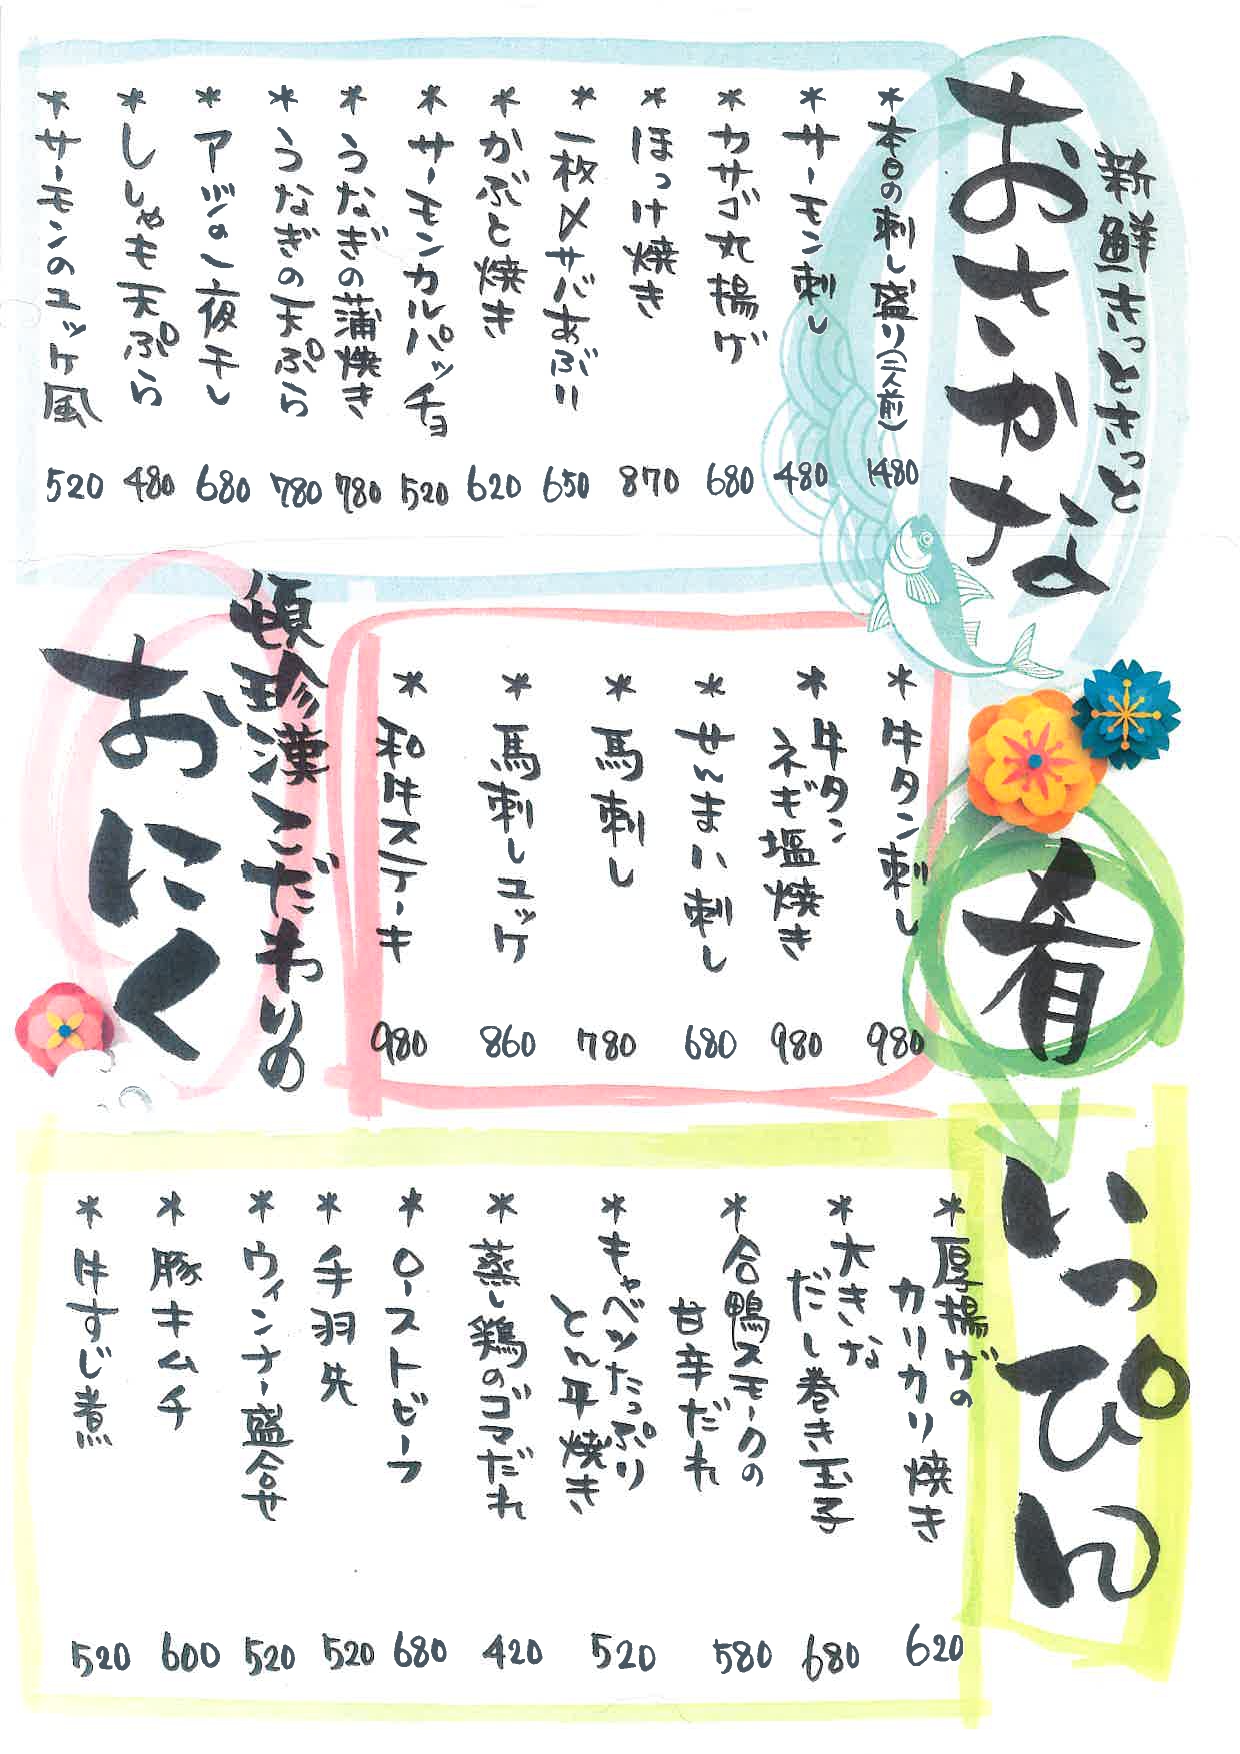 新鮮きっときっと
おさかな
*本日の刺し盛り(二人前) 1480
*サーモン刺し 480
*カサゴ丸揚げ 680
*ほっけ焼き 870
*一枚〆サバあぶり 650
*かぶと焼き 620
*サーモンカルパッチョ 520
*うなぎの蒲焼き 780
*うなぎの天ぷら 780
*アジの一夜干し 680
*ししゃも天ぷら 480
*サーモンのユッケ風 520
肴
*牛タン刺し 980
*牛タン
ネギ塩焼き 980
*せんまい刺し 680
*馬刺し 780
*馬刺しユッケ 860
*和牛ステーキ 980
頓珍漢こだわりの
おにく
いっぴん
*厚揚げの
カリカリ焼き 620
*大きな
だし巻き玉子 680
*合鴨スモークの
甘辛だれ 580
*キャベツたっぷり
とん平焼き 520
*蒸し鶏のゴマだれ 420
*ローストビーフ 680
*手羽先 520
*ウィンナー盛合せ 520
*豚キムチ 600
*牛すじ煮 520